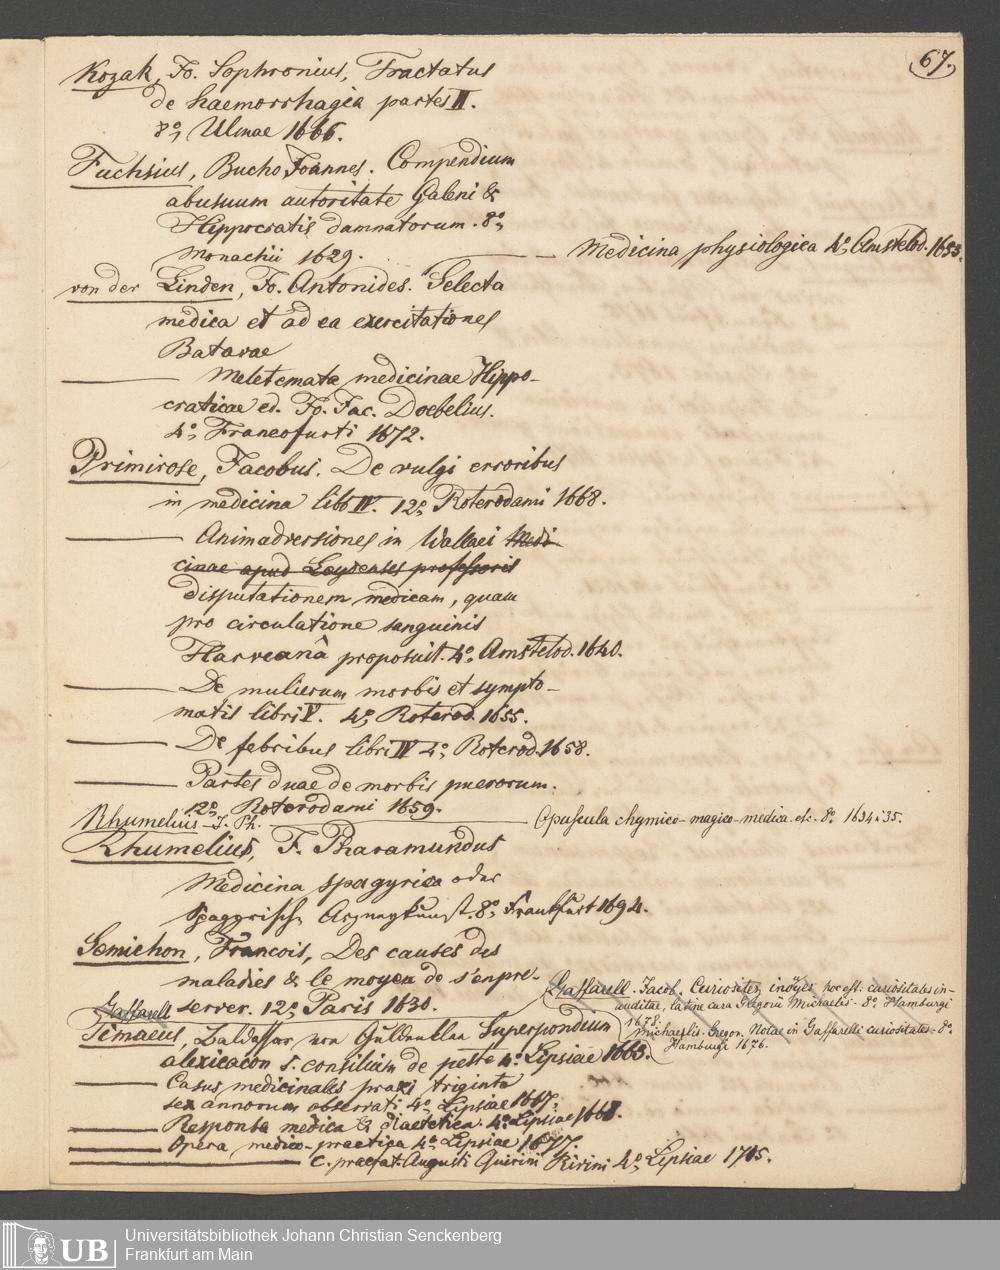 67.
Kozak, Jo. Sophronius, Tractatus
de haemorrhagia partes II.
8o, Ulmae 1666.
Fuchsius, Bucho Joannes. Compendium
abusuum autoritate Galeni &
Hippocratis damnatorum. 8o,
Monachii 1629.
— Medicina physiologica 4o, Amstelod. 1653.
von der Linden, Jo. Antonides. Selecta
medica et ad ea exercitationes
Batavae
— Meletemata medicinae Hippo-
craticae ed. Jo. Jac. Doebelius.
4o, Francofurti 1672.
Primirose, Jacobus. De vulgi erroribus
in medicina libb IV. 12o, Roterodami 1668.
— Animadversiones in Wallaei Medi-
cinae apud Leydenses professoris
disputationem medicam, quam
pro circulatione sanguinis
Harveanâ proposuit. 4o, Amstelod. 1640.
— De mulierum morbis et sympto-
matis libri V. 4o, Roterod. 1655.
— De febribus libri IV 4o, Roterod. 1658.
— Partes duae de morbis puerorum.
12o, Roterodami 1659.
Rhumelius J. Ph. — Opuscula chymico-magico-medica. etc. 8o. 1634 i 35.
Rhumelius, J. Pharamundus
Medicina spagyrica oder
Spagyrische Arzneykunst. 8o, Frankfurt 1694.
Semichon, Francois, Des causes des
maladies & le moyen de s'enpre-
server. 12o, Paris 1630.
Gaffarell. Jacob. Curiositez, inoüyes hoc est. curiositates in-
auditae, latine cura Gregorii Michaelis. 8o, Hamburgi
1678.
Michaelis. Gregor. Notae in Gaffarelli curiositates. 8o
Hamburgi 1676.
Gaffarell
Timaeus, Baldassar, von Güldenklee Superpondium
alexicacon s. consilium de peste 4o, Lipsiae 1663.
— Casus medicinales praxi triginta
sex annorum observati. 4o, Lipsiae 1667.
— Responsa medica & diaetetica. 4o, Lipsiae 1668.
— Opera medico-practica 4o, Lipsiae 1677.
— c. praefat. Augusti Quirini Rivini 4o, Lipsiae 1715.
UB
Universitätsbibliothek Johann Christian Senckenberg
Frankfurt am Main